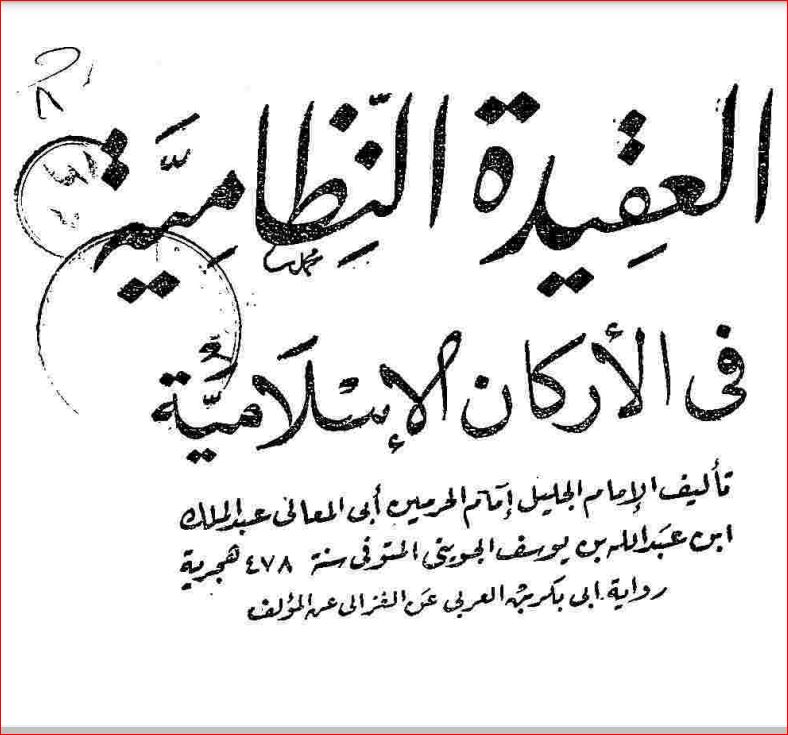 العقيدة النِّظاميَّة
في الأركان الإسلاميَّة
تأليف الإمام الجليل إمَام الحرمين أبى المعالى عبد الملك
ابن عبَد الله بن يوسف الجوينى المتوفى سنة ٤٧٨ هجرية
رواية ابى بكر بن العربي عَن الغزالى عن المؤلف